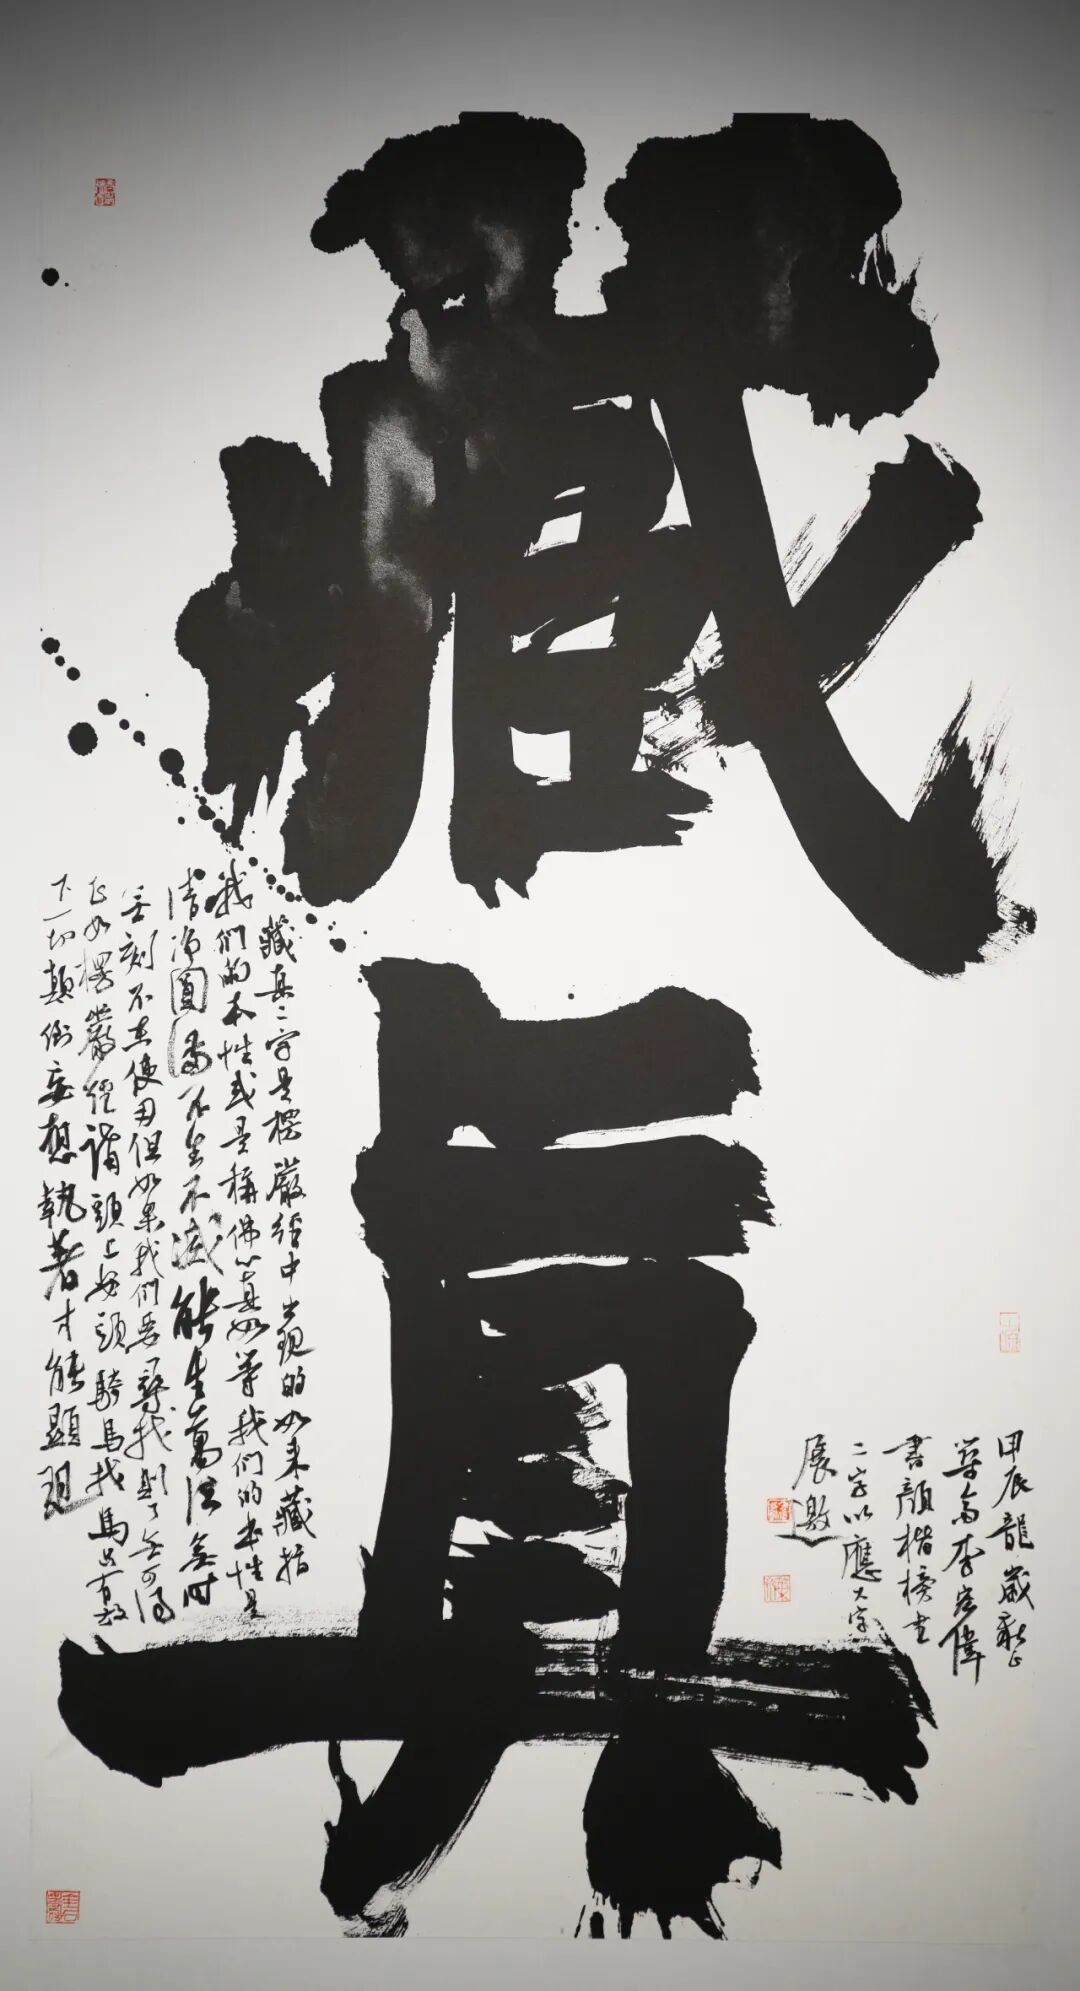 藏真
甲辰龍歲
李宏偉
書顔楷榜书
二字以應大字
展邀
藏真二字是楞嚴經中出現的如来藏指
我们的本性或是稱佛心真如等我们的本性是
清淨圓滿不生不滅能生萬法無时
無刻不在使用但如果我们要尋找則了無可得
正如楞嚴經謂頭上安頭騎馬找馬只有放
下一切顛倒妄想執著才能顯現